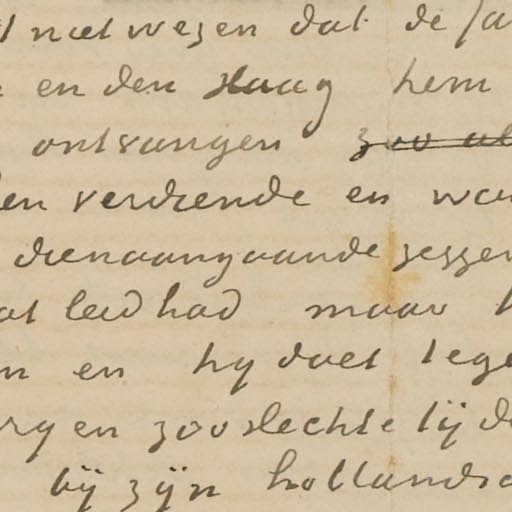 niet wezen dat de
en den slaag hem
ontvangen zoo al
verdiende en
dienaangaande zeggen
leed had maar
en hy doet tege
en zoo slechte tijd
bij zijn hollandsc